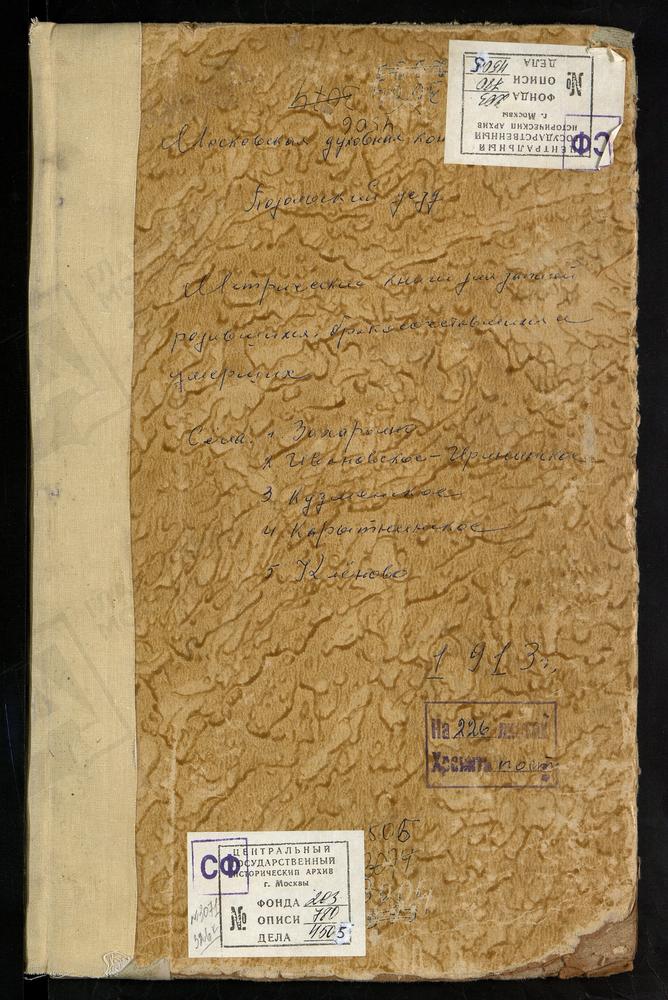 ЦЕНТРАЛЬНЫЙ
ГОСУДАРСТВЕННЫЙ
ИСТОРИЧЕСКИЙ АРХИВ
г. Москвы
ФОНДА 203
№ ОПИСИ 780
ДЕЛА 4505
СФ
Московская духовная кон
Подольский уезд
Метрические книги для записей
родившихся, бракосочетавшихся и
умерших
Сёла: 1 Захарьино
2 Ивановское-
3 Кузменское
4 Корытнинское
5 Клёново
1913г.
На 226 листах
Хранить пост
СФ
ЦЕНТРАЛЬНЫЙ
ГОСУДАРСТВЕННЫЙ
ИСТОРИЧЕСКИЙ АРХИВ
г. Москвы
ФОНДА 203
№ ОПИСИ 780
ДЕЛА 4505